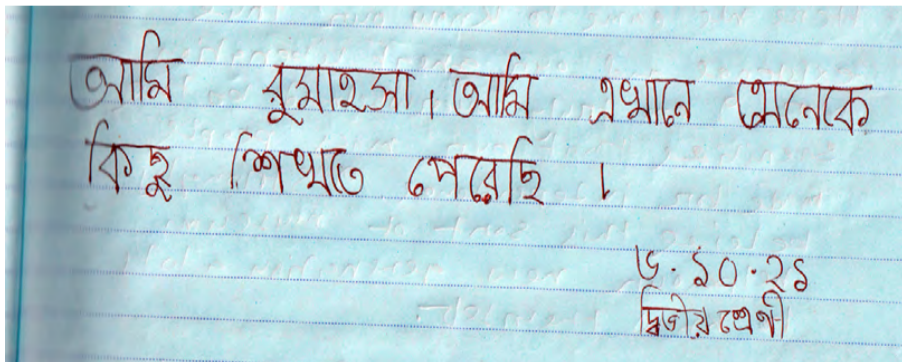 আমি রুমাইসা। আমি এখানে অনেকে
কিছু শিখতে পেরেছি ।
৬.১০.২১
দ্বিতীয় শ্রেণী